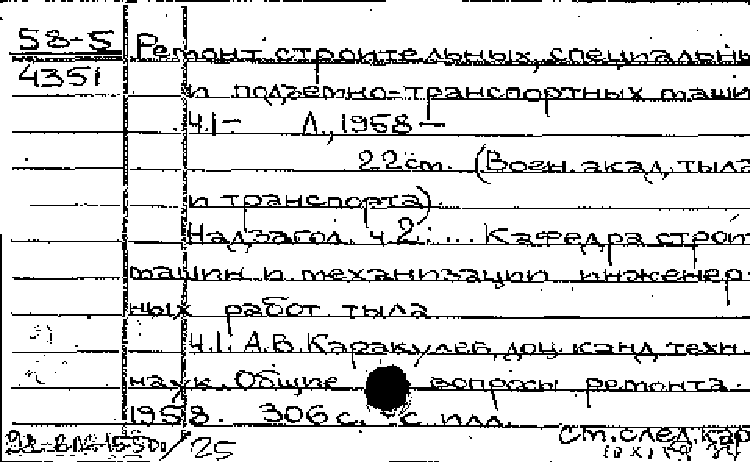 58-5
4351
Ремонт строительных, специальны
и подъемно-транспортных маши
Ч.1- Л., 1958-
22 см. (Воен. акад. тыла
и транспорта)
Надзагол. ч. 2: ... Кафедра строит
машин и механизации инженер-
ных работ тыла
Ч.1. А.В. Каракулев, доц. канд. техн.
наук. Общие вопросы ремонта.
1958. 306 с. с илл.
25 см. след. кар